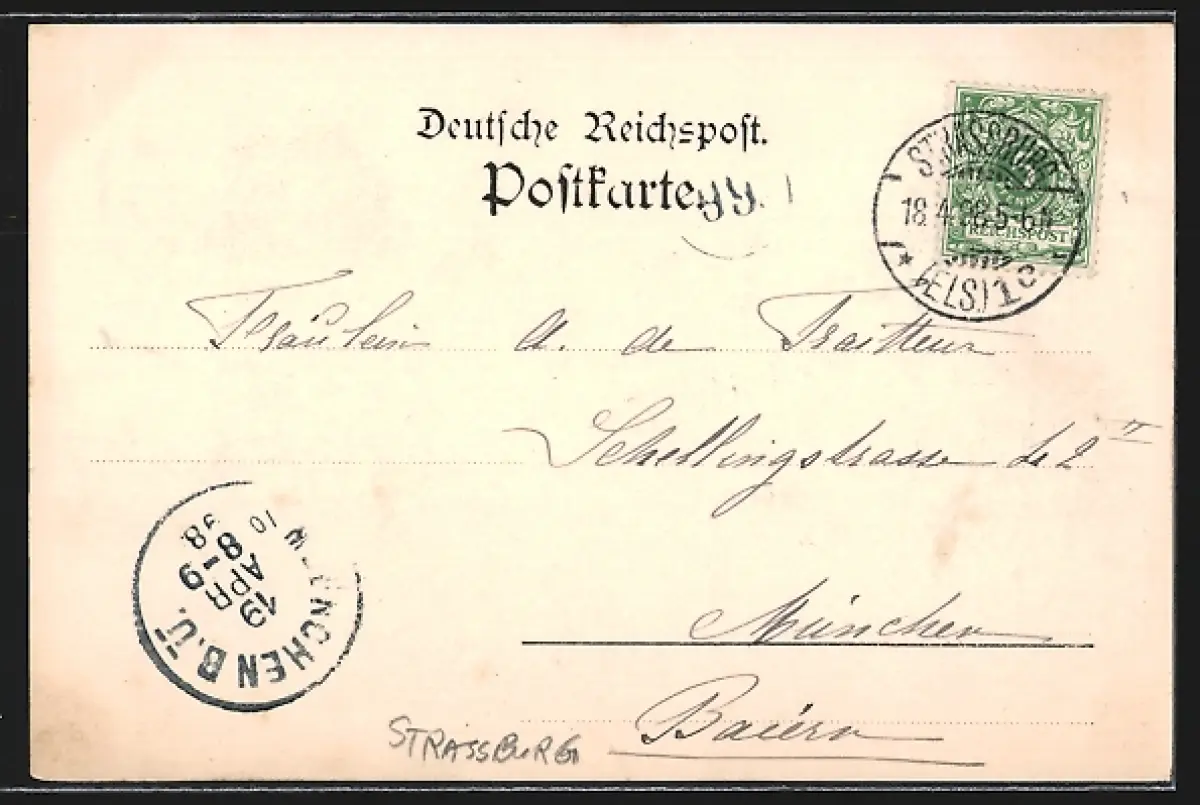 Deutsche Reichspost.
Postkarte
STRASSBURG
18.4.98.5-6N
REICHSPOST
* (ELS) 1 c
Fräulein A. de Traitteur
Schellingstrasse 42 II
München
Baiern
MUENCHEN B.Ü.
19
APR
8-9
98
10
STRASSBURG